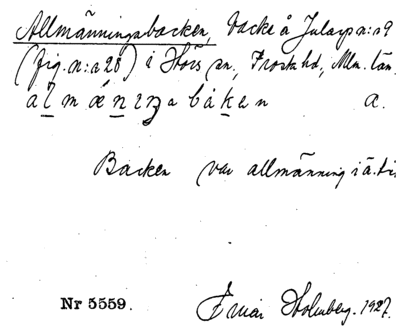 Allmänningsbacken, backe å Jularp n:o 9
(fig. n:o 28) i Hörs sn, Frosta hd, Mlm. län,
almæninzabáken a.
Backen var allmänning i ä. ti
Nr 5559. Einar Holmberg. 1927.